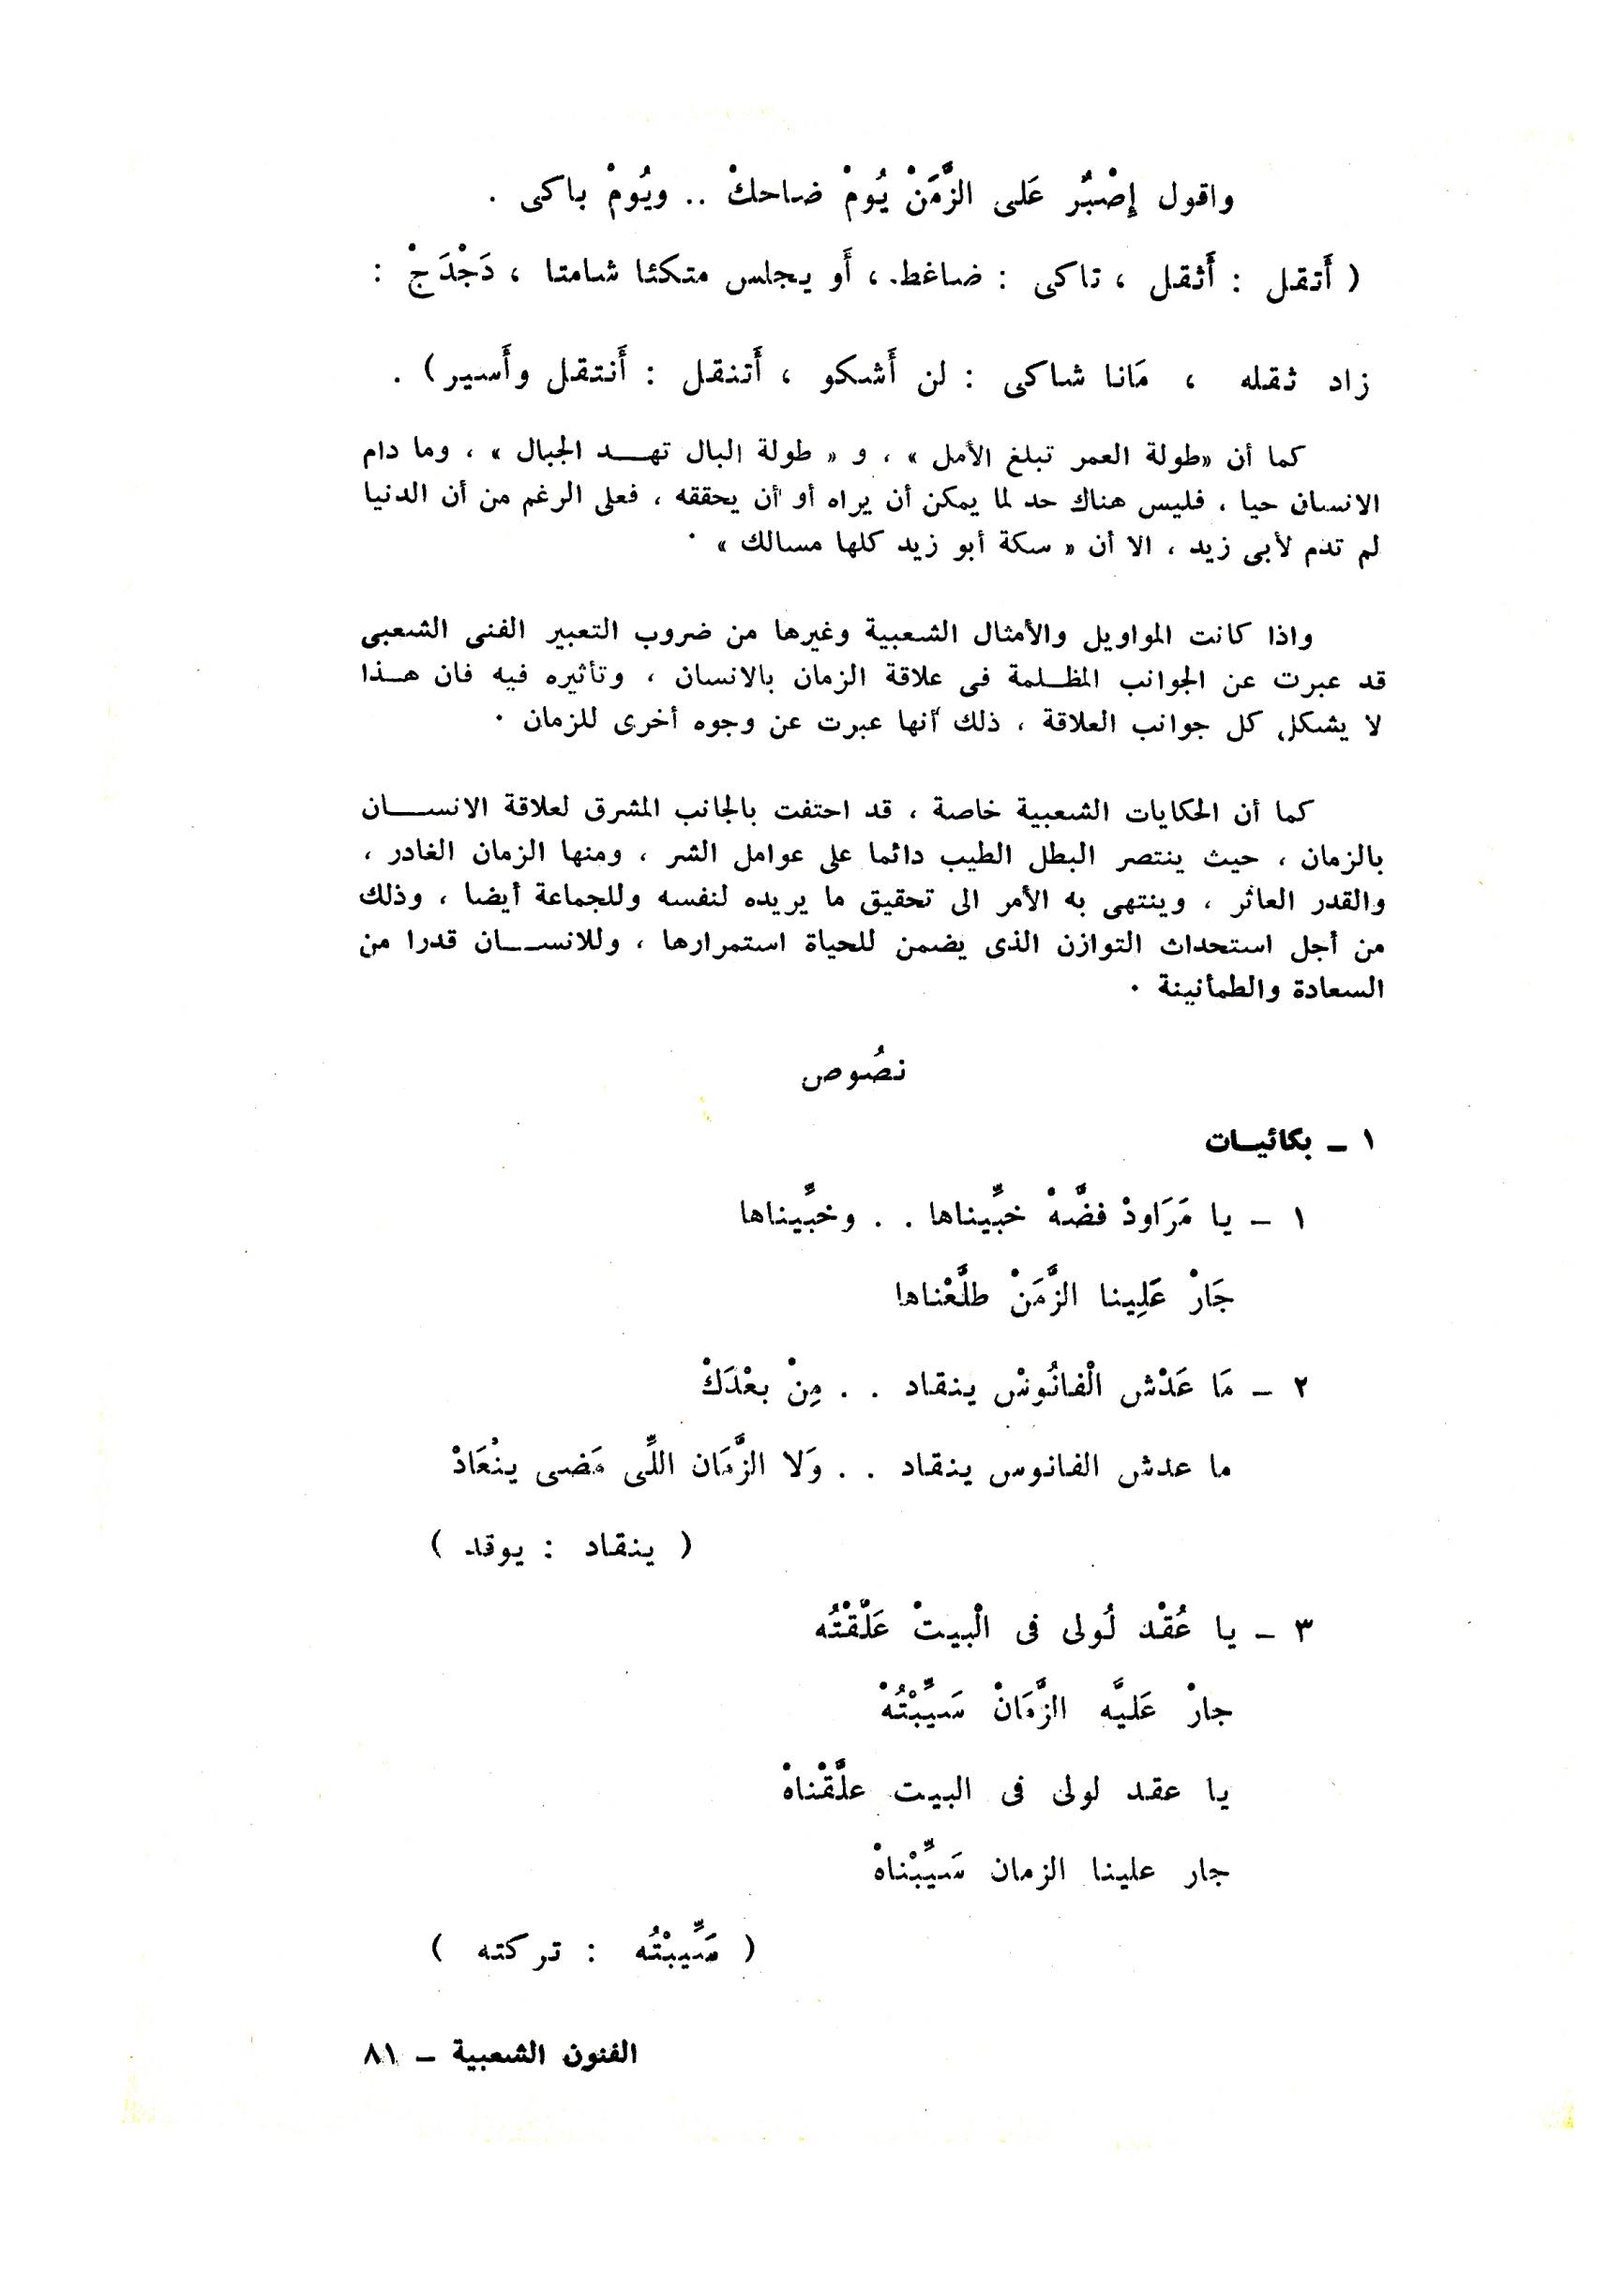 واقول إِصْبُر عَلى الزَّمَنْ يُومْ ضاحكْ .. ويُومْ باكى .
( أَتقل : أَثقل ، تاكى : ضاغط ، أَو يجلس متكئا شامتا ، دَجْدَجْ :
زاد ثقله ، مَانا شاكى : لن أَشكو ، أَتنقل : أَنتقل وأَسير) .
كما أن «طولة العمر تبلغ الأمل» ، و « طولة البال تهد الجبال » ، وما دام
الانسان حيا ، فليس هناك حد لما يمكن أن يراه أو أن يحققه ، فعلى الرغم من أن الدنيا
لم تدم لأبى زيد ، الا أن « سكة أبو زيد كلها مسالك » ٠
واذا كانت المواويل والأمثال الشعبية وغيرها من ضروب التعبير الفنى الشعبى
قد عبرت عن الجوانب المظلمة فى علاقة الزمان بالانسان ، وتأثيره فيه فان هذا
لا يشكل كل جوانب العلاقة ، ذلك أنها عبرت عن وجوه أخرى للزمان ٠
كما أن الحكايات الشعبية خاصة ، قد احتفت بالجانب المشرق لعلاقة الانسان
بالزمان ، حيث ينتصر البطل الطيب دائما على عوامل الشر ، ومنها الزمان الغادر ،
والقدر العاثر ، وينتهى به الأمر الى تحقيق ما يريده لنفسه وللجماعة أيضا ، وذلك
من أجل استحداث التوازن الذى يضمن للحياة استمرارها ، وللانسان قدرا من
السعادة والطمأنينة ٠
نصُوص
١ ـ بكائيات
١ ـ يا مَرَاودْ فضَّهْ خبِّيناها . . وخبِّيناها
جَارْ عَلِينا الزَّمَنْ طلَّعْناها
٢ ـ مَا عَدْش الْفانُوسْ ينقاد . . مِنْ بعْدَكْ
ما عدش الفانوس ينقاد . . وَلا الزَّمَان اللِّى مَضى ينْعَادْ
( ينقاد : يوقد )
٣ ـ يا عُقْد لُولى فى الْبيتْ عَلَّقْتُه
جارْ عَليَّه الزَّمَانْ سَيِّبْتُهْ
يا عقد لولى فى البيت علَّقْناهْ
جار علينا الزمان سَيِّبْناهْ
( سَيِّبْتُه : تركته )
الفنون الشعبية ـ ٨١